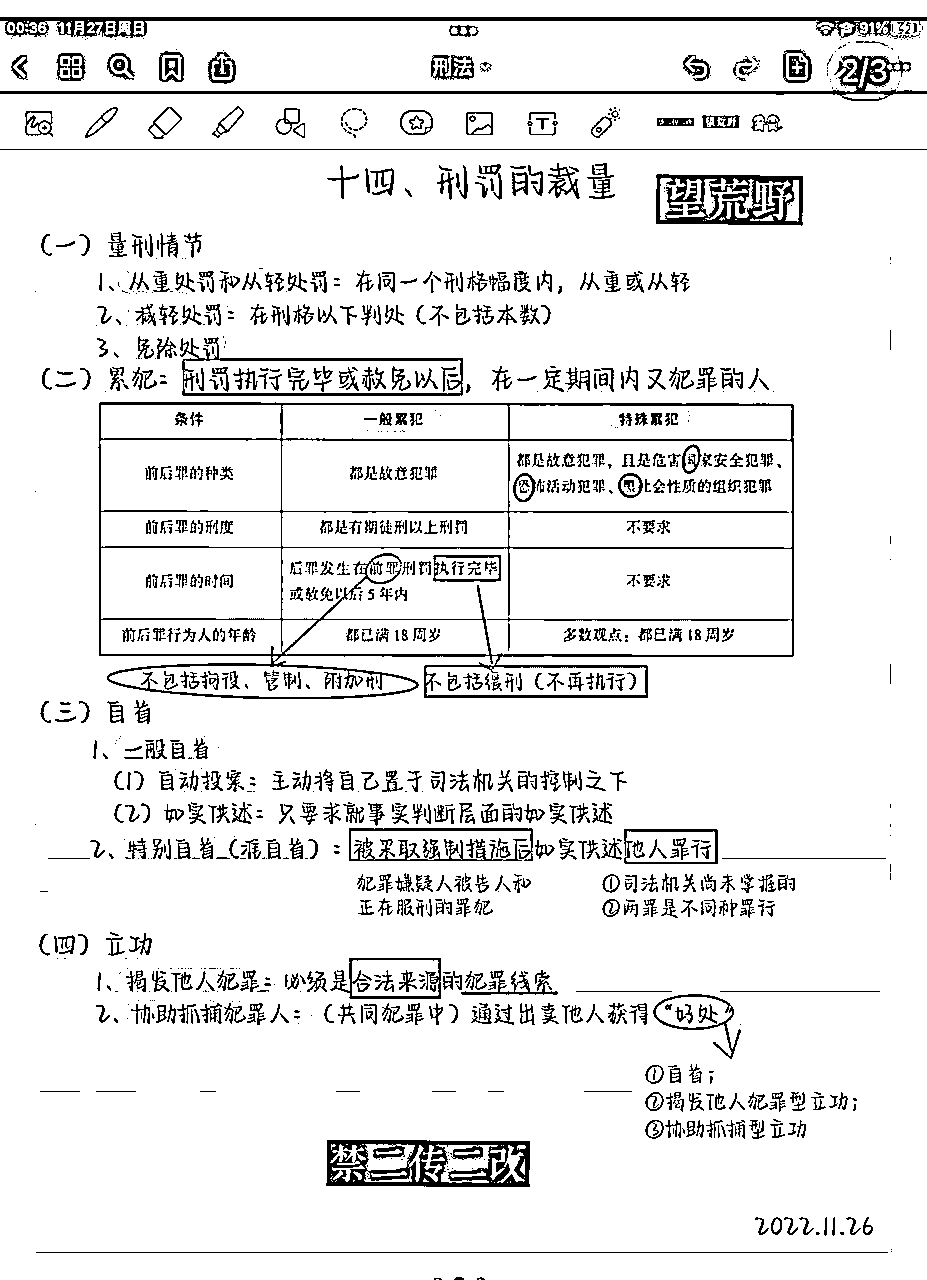 00:36 11月27日周日
91%
刑法
2/3
十四、刑罚的裁量
望荒野
（一）量刑情节
1、从重处罚和从轻处罚：在同一个刑格幅度内，从重或从轻
2、减轻处罚：在刑格以下判处（不包括本数）
3、免除处罚
（二）累犯：刑罚执行完毕或赦免以后，在一定期间内又犯罪的人
条件 一般累犯 特殊累犯
前后罪的种类 都是故意犯罪 都是故意犯罪，且是危害国家安全犯罪、恐怖活动犯罪、黑社会性质的组织犯罪
前后罪的刑度 都是有期徒刑以上刑罚 不要求
前后罪的时间 后罪发生在前罪刑罚执行完毕或赦免以后5年内 不要求
前后罪行为人的年龄 都已满18周岁 多数观点：都已满18周岁
不包括拘役、管制、附加刑 不包括缓刑（不再执行）
（三）自首
1、一般自首
（1）自动投案：主动将自己置于司法机关的控制之下
（2）如实供述：只要求就事实判断层面的如实供述
2、特别自首（准自首）：被采取强制措施后如实供述他人罪行
犯罪嫌疑人被告人和 ①司法机关尚未掌握的
正在服刑的罪犯 ②两罪是不同种罪行
（四）立功
1、揭发他人犯罪：必须是合法来源的犯罪线索
2、协助抓捕犯罪人：（共同犯罪中）通过出卖他人获得“好处”
①自首；
②揭发他人犯罪型立功；
③协助抓捕型立功
禁二传二改
2022.11.26